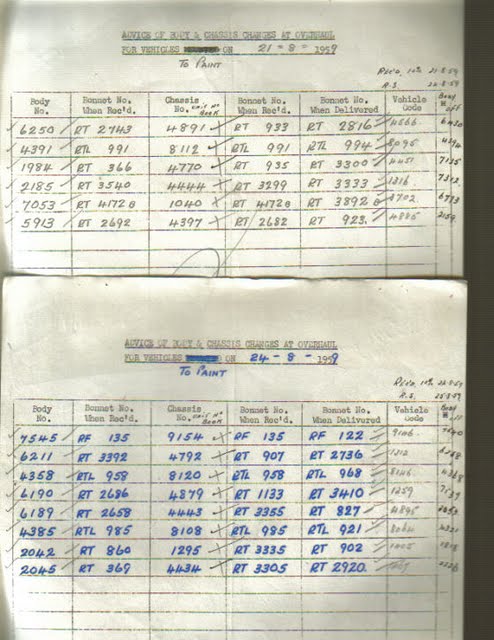 ADVICE OF BODY & CHASSIS CHANGES AT OVERHAUL
FOR VEHICLES ON 21-8-1959
TO PAINT
Body No. Bonnet No. When Rec'd. Chassis No. Bonnet No. When Rec'd. Bonnet No. When Delivered Vehicle Code Body OFF
6250 RT 2743 4891 RT 933 RT 2816 4566
4391 RTL 991 8112 RTL 991 RTL 994 8095
1984 RT 366 4770 RT 935 RT 3300 4451 7135
2185 RT 3540 4444 RT 3299 RT 3333 1316
7053 RT 4172 1040 RT 4172 RT 3892 4702 6773
5913 RT 2692 4397 RT 2682 RT 923 4885 2159
ADVICE OF BODY & CHASSIS CHANGES AT OVERHAUL
FOR VEHICLES ON 24-8-1959
TO PAINT
Body No. Bonnet No. When Rec'd. Chassis No. Bonnet No. When Rec'd. Bonnet No. When Delivered Vehicle Code Body
7545 RF 135 9154 RF 135 RF 122 9146
6211 RT 3392 4792 RT 907 RT 2736 1212
4358 RTL 958 8120 RTL 958 RTL 968 8146
6190 RT 2686 4879 RT 1133 RT 3410 1259
6189 RT 2658 4443 RT 3355 RT 827 4895
4385 RTL 985 8108 RTL 985 RTL 921 8064
2042 RT 860 1295 RT 3335 RT 902
2045 RT 369 4434 RT 3305 RT 2920